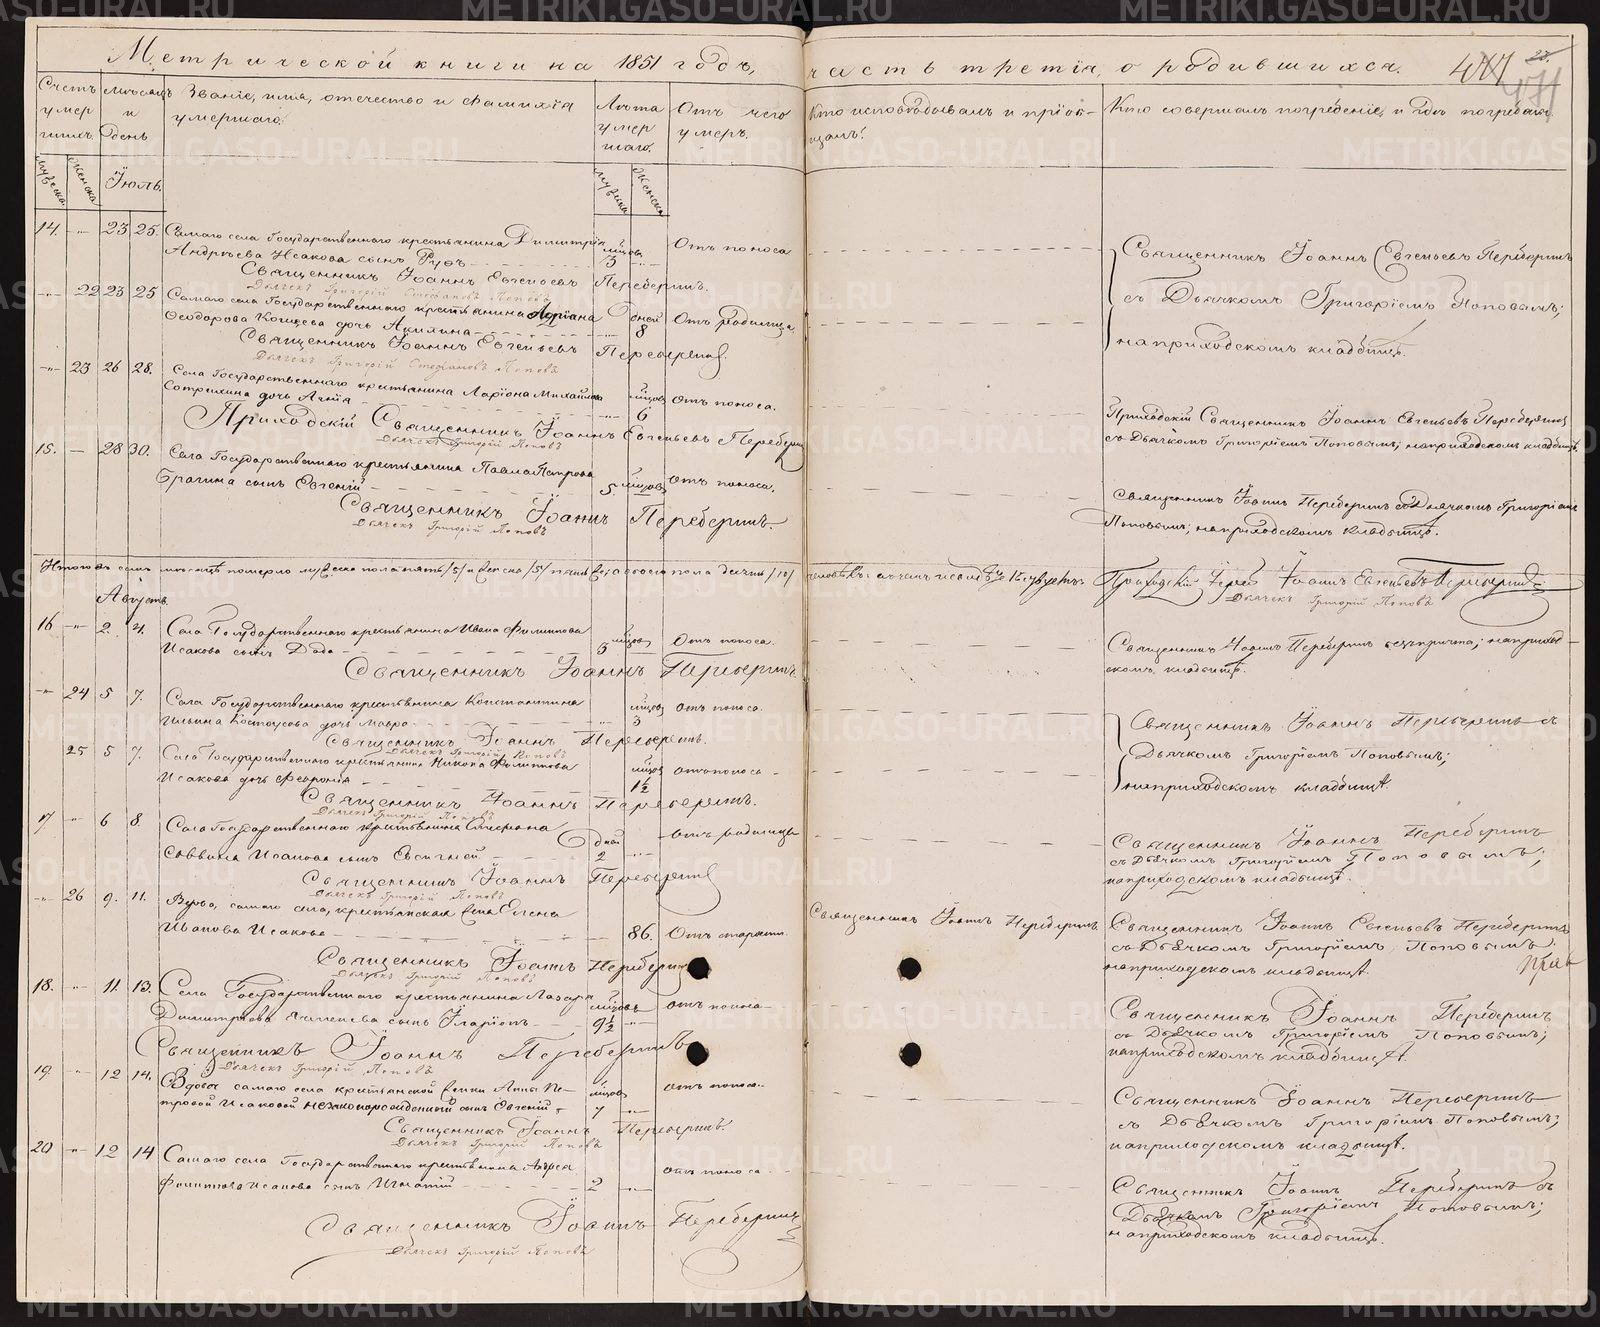 Метрической книги на 1851 годъ, часть третія, о родившихся.
Счетъ умершихъ.
Мѣсяцъ и день
Званіе, имя, отечество и фамилія умершаго.
Лѣта умершаго.
Отъ чего умеръ.
Кто исповѣдывалъ и пріобщалъ.
Кто совершалъ погребеніе, и гдѣ погребены.
Мужеска. Женска. Іюль.
14. 23 25. Самаго села Государственнаго крестьянина Димитрія
Андреева Исакова сынъ
3 Отъ поноса
Священникъ Іоаннъ Евгеньевъ Переберинъ.
Дьячекъ Григорій Стефановъ Поповъ
Священникъ Іоаннъ Евгеньевъ Переберинъ
съ Дьячкомъ Григоріемъ Поповымъ;
на приходскомъ кладбищѣ.
22 23 25 Самаго села Государственнаго крестьянина
Ѳеодорова дочь Акилина
Дней 8 Отъ родимца
Священникъ Іоаннъ Евгеньевъ Переберинъ
Дьячекъ Григорій Стефановъ Поповъ
23 26 28. Села Государственнаго крестьянина Ларіона Михайлова
дочь
6 отъ поноса.
Приходскій Священникъ Іоаннъ Евгеньевъ Переберинъ
Дьячекъ Григорій Поповъ
Приходскій Священникъ Іоаннъ Евгеньевъ Переберинъ
съ Дьячкомъ Григоріемъ Поповымъ; на приходскомъ кладбищѣ.
15. 28 30. Села Государственнаго крестьянина Павла Петрова
Брагина сынъ Евгеній
5 отъ поноса.
Священникъ Іоаннъ Переберинъ
Дьячекъ Григорій Поповъ
Священникъ Іоаннъ Переберинъ съ Дьячкомъ Григоріемъ
Поповымъ; на приходскомъ кладбищѣ.
Итого въ семъ мѣсяцѣ померло мужеска пола пять /5/ и женска /5/ пять; обоего пола десять /10/
Приходскій Іерей Іоаннъ Евгеньевъ Переберинъ
Дьячекъ Григорій Поповъ
Августъ.
16 2. 4. Села Государственнаго крестьянина Ивана Филиппова
Исакова сынъ
5 Отъ поноса.
Священникъ Іоаннъ Переберинъ
Священникъ Іоаннъ Переберинъ безъ причта; на приход-
скомъ кладбищѣ.
24 5 7. Села Государственнаго крестьянина Константина
Ильина дочь Мавра
3 отъ поноса.
Священникъ Іоаннъ Переберинъ.
Дьячекъ Григорій Поповъ
Священникъ Іоаннъ Переберинъ съ
Дьячкомъ Григоріемъ Поповымъ;
на приходскомъ кладбищѣ.
25 5 7. Села Государственнаго крестьянина Никона Филиппова
Исакова дочь Феврония
1½ отъ поноса
Священникъ Іоаннъ Переберинъ.
Дьячекъ Григорій Поповъ
17 6 8. Села Государственнаго крестьянина Стефана
Саввина Исакова сынъ Евсигней
дней 2 отъ родимца
Священникъ Іоаннъ Переберинъ
Дьячекъ Григорій Поповъ
Священникъ Іоаннъ Переберинъ
съ Дьячкомъ Григоріемъ Поповымъ;
на приходскомъ кладбищѣ.
26 9. 11. Вдова, самаго села, крестьянская жена Елена
Иванова Исакова
86. Отъ старости.
Священникъ Іоаннъ Переберинъ
Дьячекъ Григорій Поповъ
Священникъ Іоаннъ Переберинъ
Священникъ Іоаннъ Евгеньевъ Переберинъ
съ Дьячкомъ Григоріемъ Поповымъ.
на приходскомъ кладбищѣ.
18. 11. 13. Села Государственнаго крестьянина Лазаря
Димитріева сынъ Иларіонъ
9½ отъ поноса
Священникъ Іоаннъ Переберинъ
Дьячекъ Григорій Поповъ
Священникъ Іоаннъ Переберинъ
съ Дьячкомъ Григоріемъ Поповымъ;
на приходскомъ кладбищѣ.
19. 12 14. Вдовы самаго села крестьянской жинки Анны Пе-
тровой Исаковой незаконорожденный сынъ Евгеній
7 отъ поноса.
Священникъ Іоаннъ Переберинъ.
Дьячекъ Григорій Поповъ
Священникъ Іоаннъ Переберинъ
съ Дьячкомъ Григоріемъ Поповымъ;
на приходскомъ кладбищѣ.
20 12 14 Самаго села Государственнаго крестьянина Андрея
Филиппова Исакова сынъ Игнатій
2 отъ поноса.
Священникъ Іоаннъ Переберинъ
Дьячекъ Григорій Поповъ
Священникъ Іоаннъ Переберинъ съ
Дьячкомъ Григоріемъ Поповымъ;
на приходскомъ кладбищѣ.
METRIKI.GASO-URAL.RU